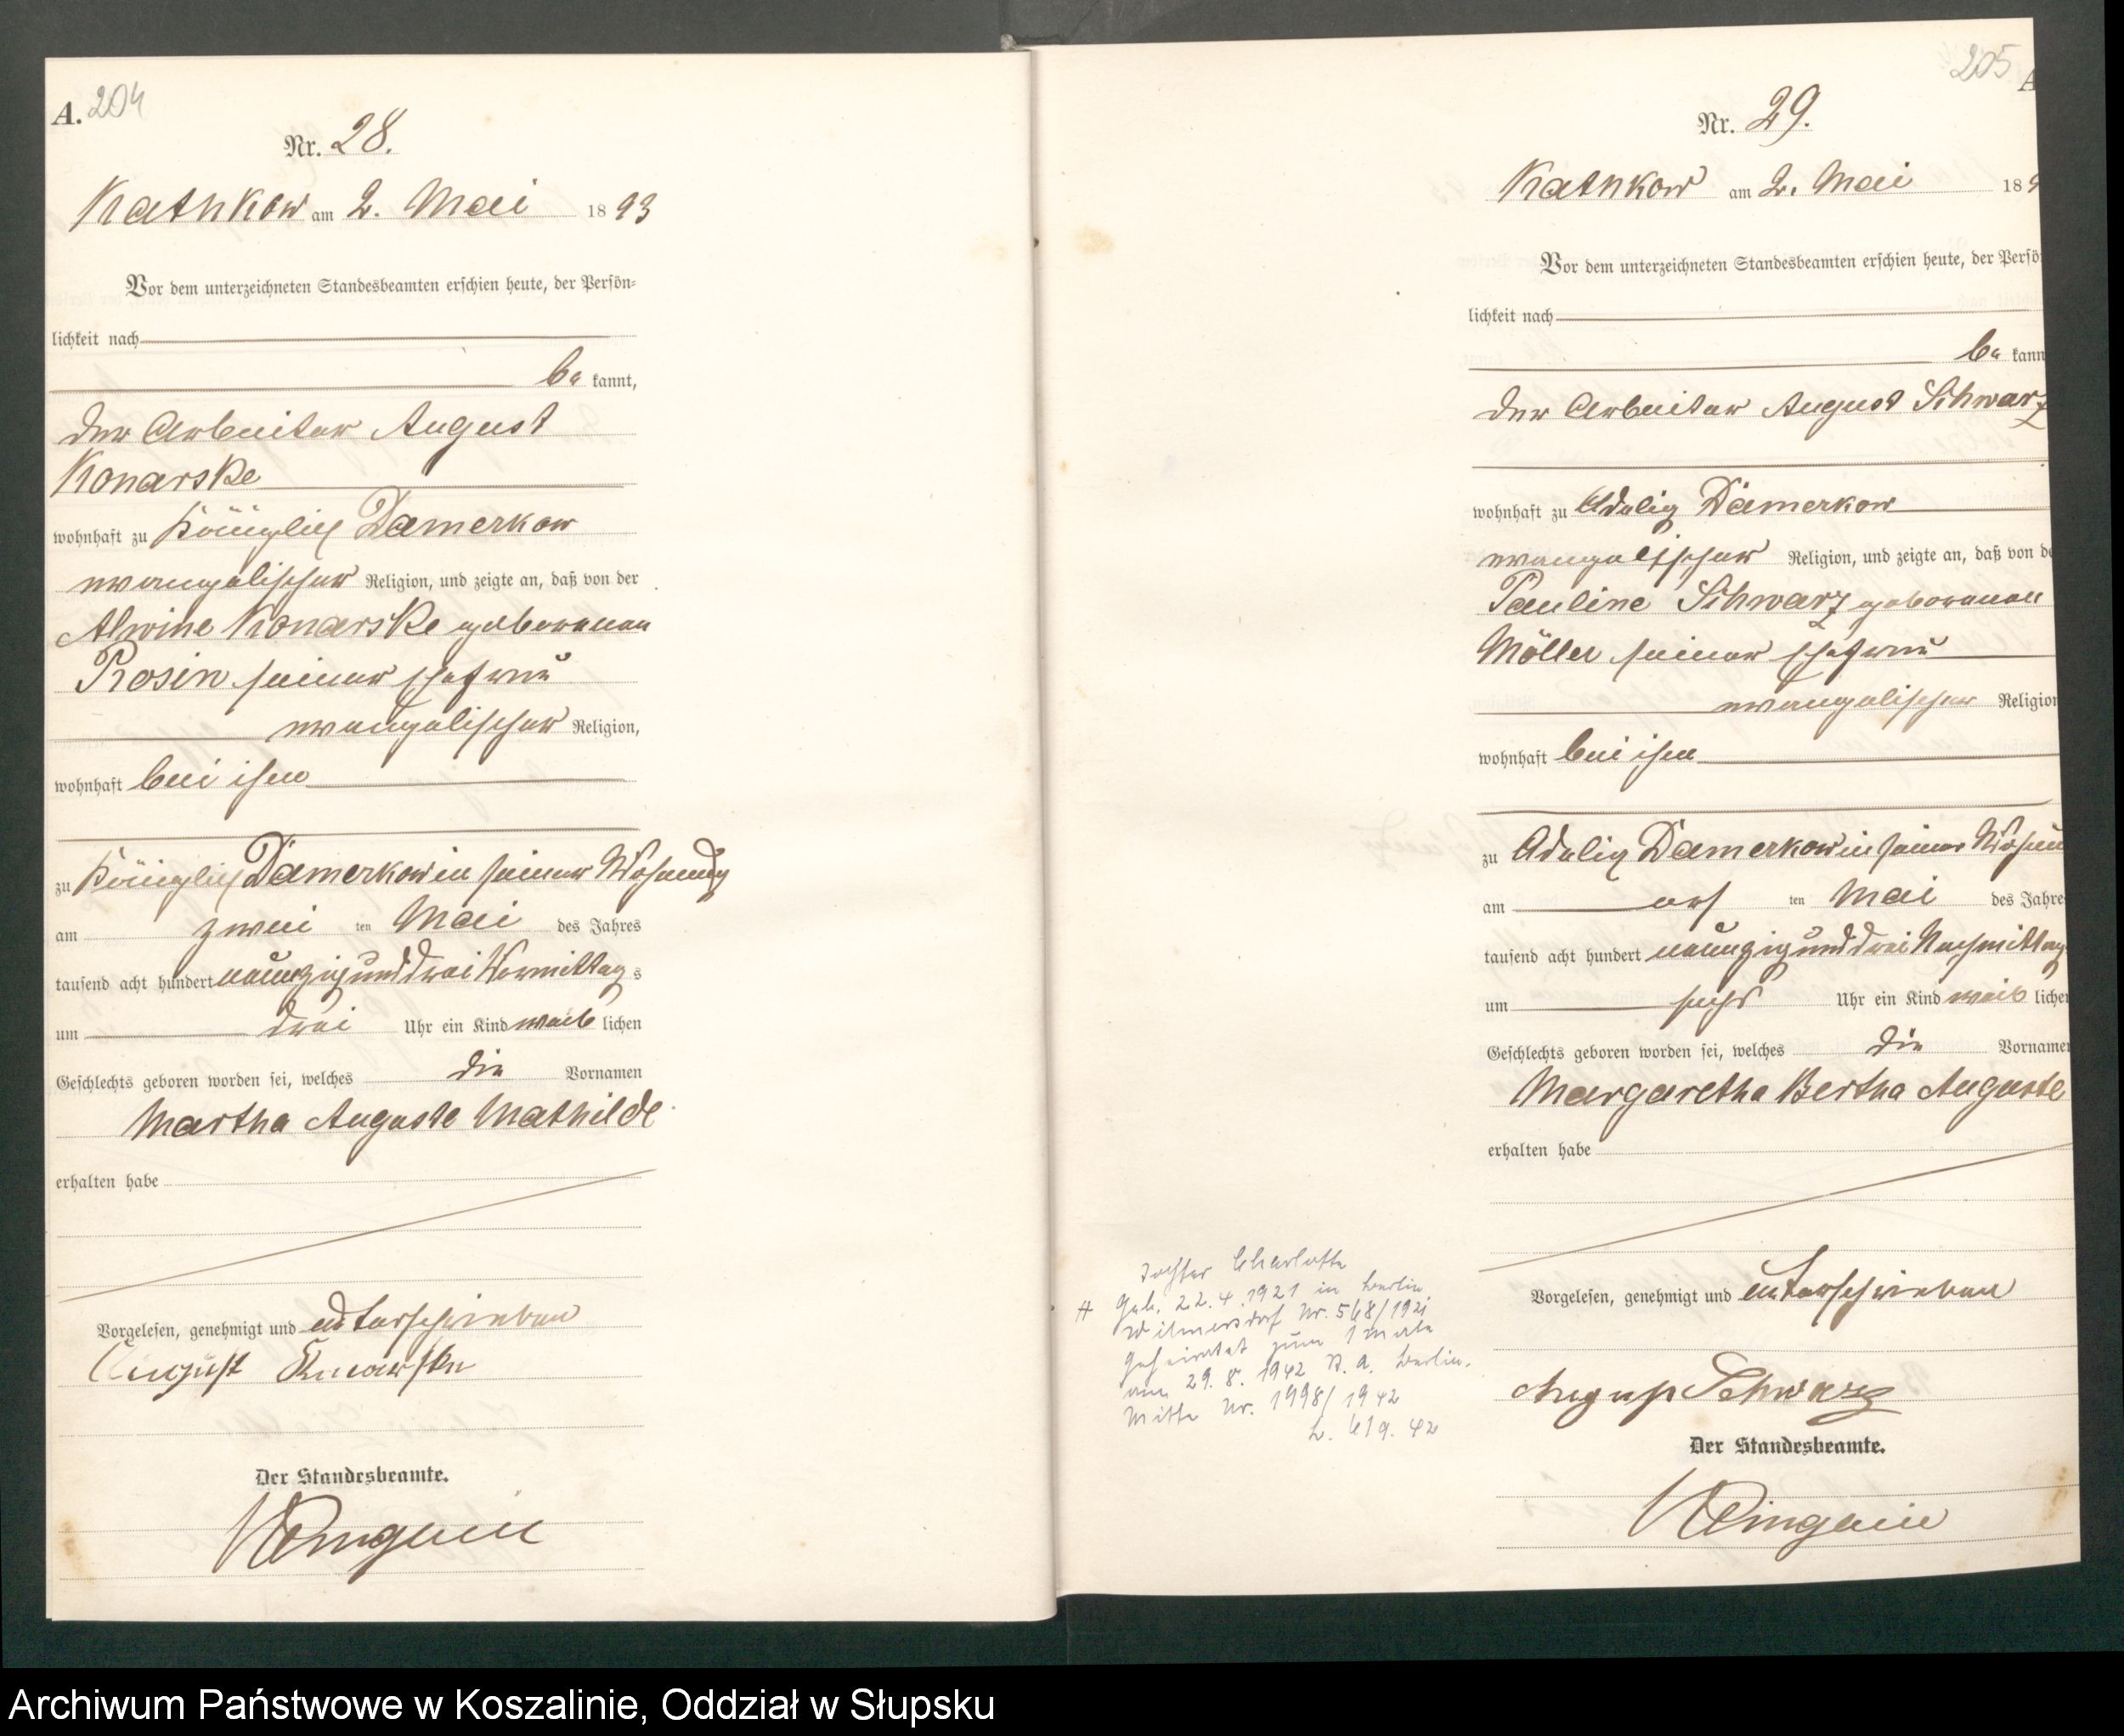 A. 204
Nr. 28.
Rathkow am 2. Mai 1893
Vor dem unterzeichneten Standesbeamten erschien heute, der Persön-
lichkeit nach
be kannt,
der Arbeiter August
Konarske
wohnhaft zu Königlich Damerkow
evangelischer Religion, und zeigte an, daß von der
Alwine Konarske geborenen
Rosin seiner Ehefrau
evangelischer Religion,
wohnhaft bei ihm
zu Königlich Damerkow in seiner Wohnung
am zwei ten Mai des Jahres
tausend acht hundert neunzig und drei Vormittag s
um drei Uhr ein Kind weib lichen
Geschlechts geboren worden sei, welches die Vornamen
Martha Auguste Mathilde
erhalten habe
Vorgelesen, genehmigt und unterschrieben
August
Der Standesbeamte.
205
A
Nr. 29.
Rathkow am 2. Mai 189
Vor dem unterzeichneten Standesbeamten erschien heute, der Persö
lichkeit nach
be kann
der Arbeiter August Schwarz
wohnhaft zu Adelig Damerkow
evangelischer Religion, und zeigte an, daß von de
Pauline Schwarz geborenen
Möller seiner Ehefrau
evangelischer Religion
wohnhaft bei ihm
zu Adelig Damerkow in seiner Wohnun
am ten Mai des Jahre
tausend acht hundert neunzig und drei Nachmittag
um sechs Uhr ein Kind weib liche
Geschlechts geboren worden sei, welches die Vorname
Margaretha Bertha Auguste
erhalten habe
Tochter Charlotte
geb. 22.4.1921 in Berlin
Wilmersdorf Nr. 568/1921
Geheiratet zum 1 male
am 29. 8. 1942 St. A. Berlin.
Mitte Nr. 1998/1942
Vorgelesen, genehmigt und unterschrieben
August Schwarz
Der Standesbeamte.
Archiwum Państwowe w Koszalinie, Oddział w Słupsku